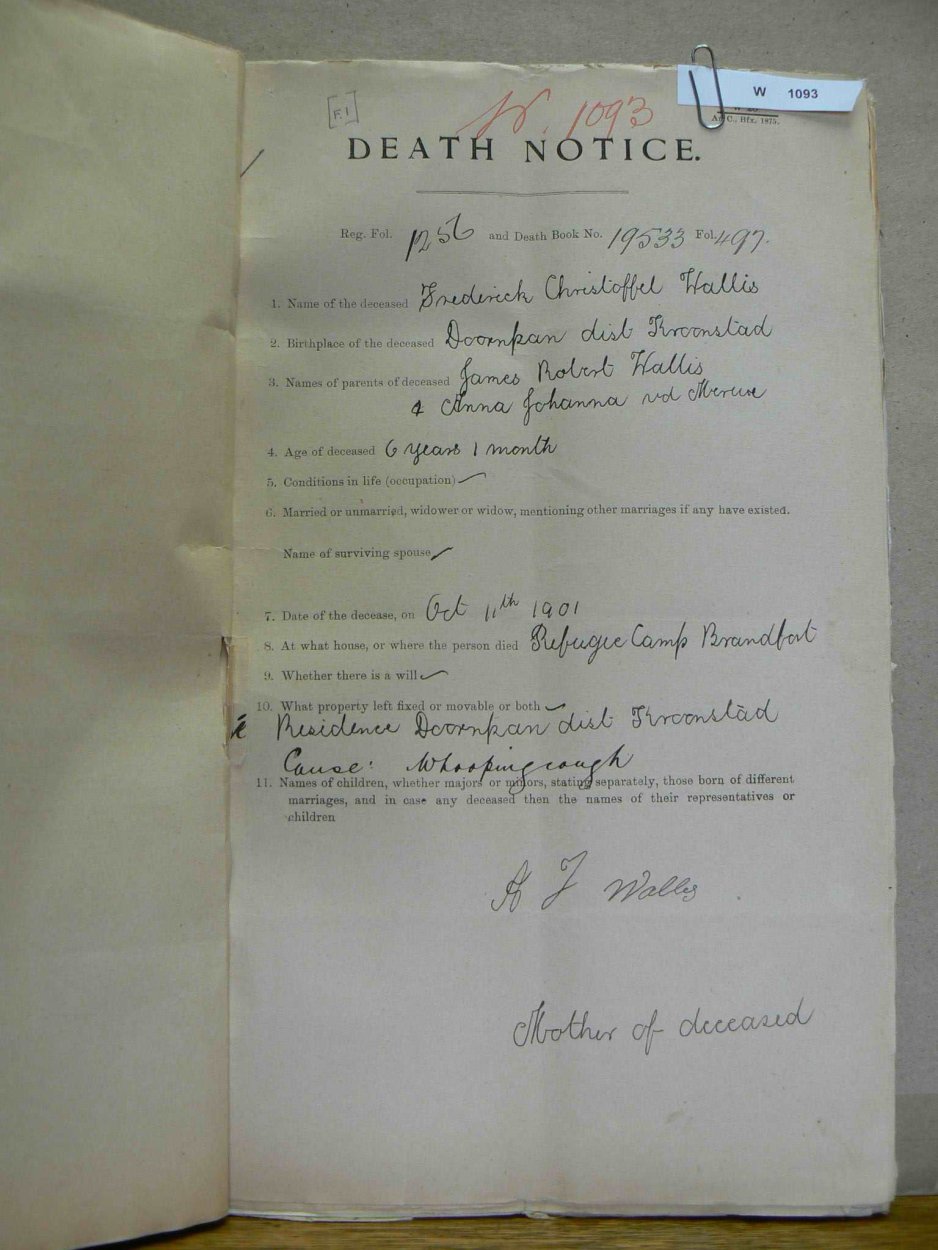 W 1093
[F.1]
W. 1093
C., Hfx. 1875.
DEATH NOTICE.
Reg. Fol. 1256 and Death Book No. 19533 Fol. 497.
1. Name of the deceased Frederick Christoffel Wallis
2. Birthplace of the deceased Doornpan dist Kroonstad
3. Names of parents of deceased James Robert Wallis
& Anna Johanna vd Merwe
4. Age of deceased 6 years 1 month
5. Conditions in life (occupation)
6. Married or unmarried, widower or widow, mentioning other marriages if any have existed.
Name of surviving spouse
7. Date of the decease, on Oct 11th 1901
8. At what house, or where the person died Refugee Camp Brandfort
9. Whether there is a will
10. What property left fixed or movable or both
Residence Doornpan dist Kroonstad
Cause: Whoopingcough
11. Names of children, whether majors or minors, stating separately, those born of different
marriages, and in case any deceased then the names of their representatives or
children
A J Wallis
Mother of deceased